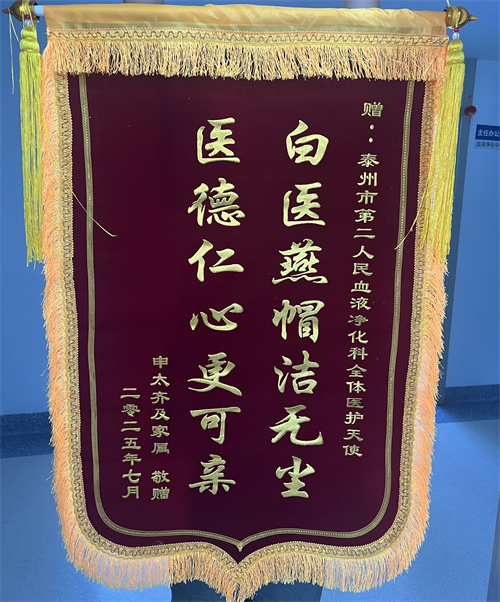 赠：泰州市第二人民血液净化科全体医护天使
白医燕帽洁无尘
医德仁心更可亲
申太齐及家属 敬赠
二零二五年七月
主任办公